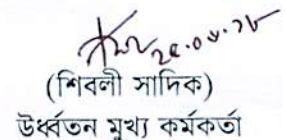 ২৫.০৮.২৮
(শিবলী সাদিক)
উর্ধ্বতন মুখ্য কর্মকর্তা